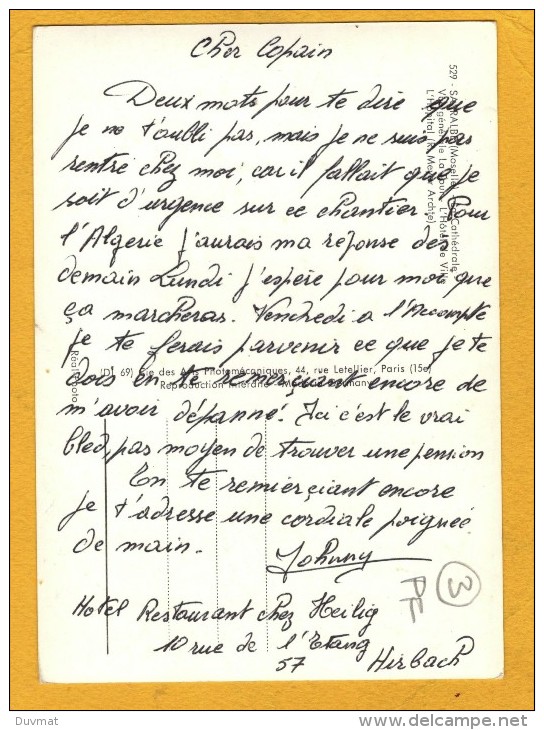 Cher Copain
Deux mots pour te dire que
je ne t'oubli pas, mais je ne suis pas
rentré chez moi, car il fallait que je
soit d'urgence sur ce chantier. Pour
l'Algerie j'aurais ma réponse dès
demain Lundi j'espère pour moi que
ça marcheras. Vendredi a l'Accompte
je te ferais parvenir ce que je te
dois en te remerçiant encore de
m'avoir dépanné. Ici c'est le vrai
bled, pas moyen de trouver une pension
En te remierçiant encore
je t'adresse une cordiale poignée
de main.
Johnny
Hotel Restaurant chez Heilig
10 rue de l'Etang
57 Hirbach
3
PF
529 - SARRALBE (Moselle) - La Cathédrale
Vue générale - L'Hôtel de Ville
L'Hôpital (R. Meyer Archte)
(D. 69) Cie des Arts Photomécaniques, 44, rue Letellier, Paris (15e)
Reproduction interdite - Made in Germany
Réal. Photo
Duvmat
delcampe.net